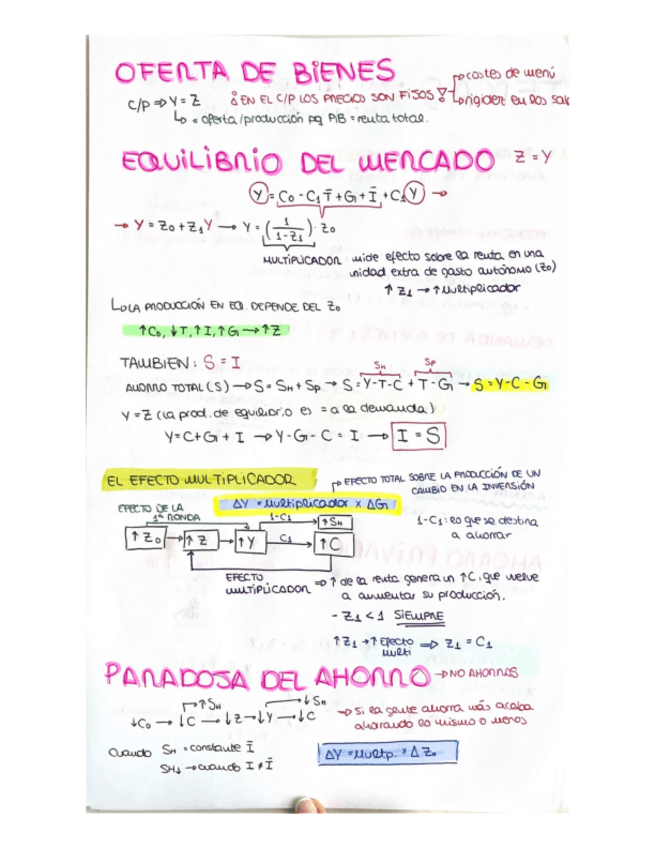 OFERTA DE BIENES
C/P ⇒ Y = Z ¡EN EL C/P LOS PRECIOS SON FIJOS! → costes de menú
↳ = oferta/producción pq PIB = renta total. ↳ rigidez en los
EQUILIBRIO DEL MERCADO Z = Y
Y = C₀ - C₁T̄ + G + Ī + C₁Y →
→ Y = Z₀ + Z₁Y → Y = (1/1-Z₁) · Z₀
MULTIPLICADOR mide efecto sobre la renta en una
unidad extra de gasto autónomo (Z₀)
↑ Z₁ → ↑ Multiplicador
↳ LA PRODUCCIÓN EN EQ. DEPENDE DEL Z₀
↑C₀, ↓T, ↑I, ↑G → ↑Z
TAMBIEN: S = I
SH SP
AHORRO TOTAL (S) → S = SH + SP → S = Y-T-C + T-G → S = Y-C-G
Y = Z (la prod. de equilibrio es = a la demanda)
Y = C+G+I → Y-G-C = I → I = S
EL EFECTO MULTIPLICADOR → EFECTO TOTAL SOBRE LA PRODUCCIÓN DE UN
CAMBIO EN LA INVERSIÓN
ΔY = Multiplicador × ΔG
EFECTO DE LA
1ª RONDA
1-C₁ ↑SH
1-C₁: lo que se destina
a ahorrar
↑Z₀ → ↑Z → ↑Y C₁ ↑C
EFECTO
MULTIPLICADOR ⇒ ↑ de la renta genera un ↑C, que vuelve
a aumentar su producción.
- Z₁ < 1 SIEMPRE
↑Z₁ → ↑ Efecto
multi ⇒ Z₁ = C₁
PARADOJA DEL AHORRO → NO AHORRAS
↑SH ↓SH
↓C₀ → ↓C → ↓Z → ↓Y → ↓C
→ Si la gente ahorra más acaba
ahorrando lo mismo o menos
Cuando SH = constante Ī
SH↓ → cuando I ≠ Ī
ΔY = Multp. × ΔZ₀